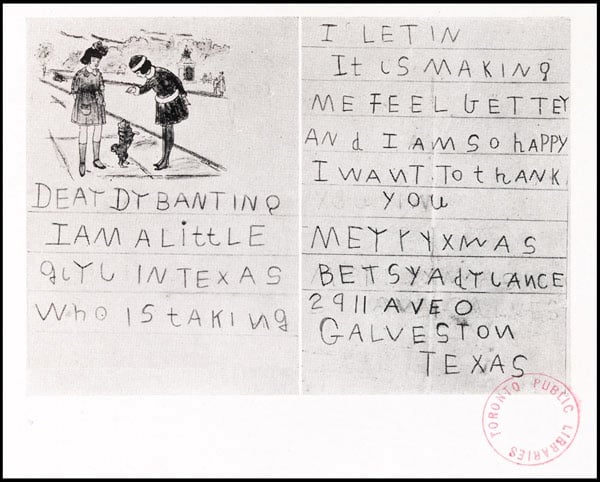 DEAr Dr BANTINg
I AM A LittLE
girL IN TEXAS
Who IS tAKINg
I LET IN
It iS MAKINg
ME FEEL BETTEr
ANd I AM SO hAPPY
I WANT To thANK
YOU
MErrY XMAS
BETSY AdrLANCE
2911 AVE O
GALVESTON
TEXAS
TORONTO PUBLIC LIBRARIES